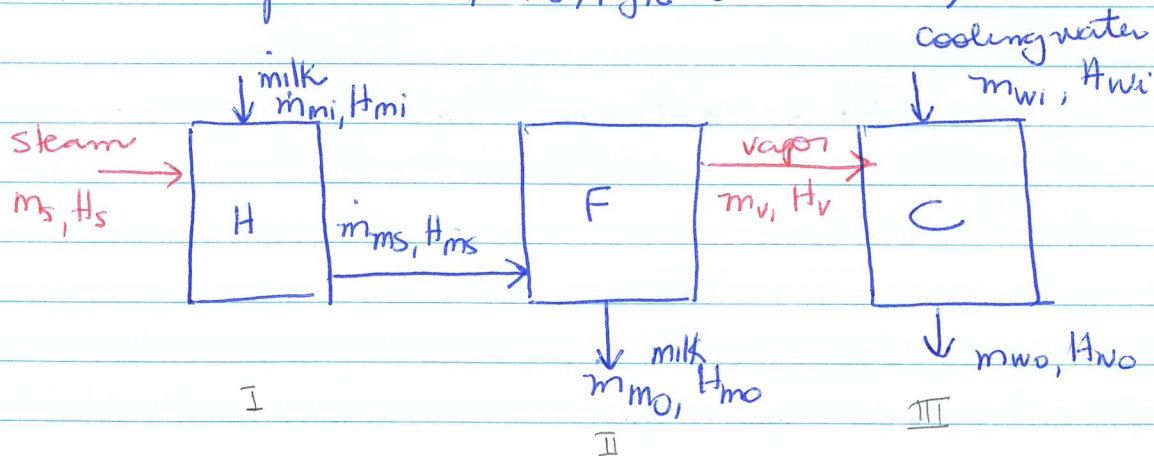 cooling water
ṁwi, Hwi
milk
ṁmi, Hmi
steam
ms, Hs
H
ṁms, Hms
F
vapor
mv, Hv
C
milk
mmo, Hmo
mwo, Hwo
I
II
III